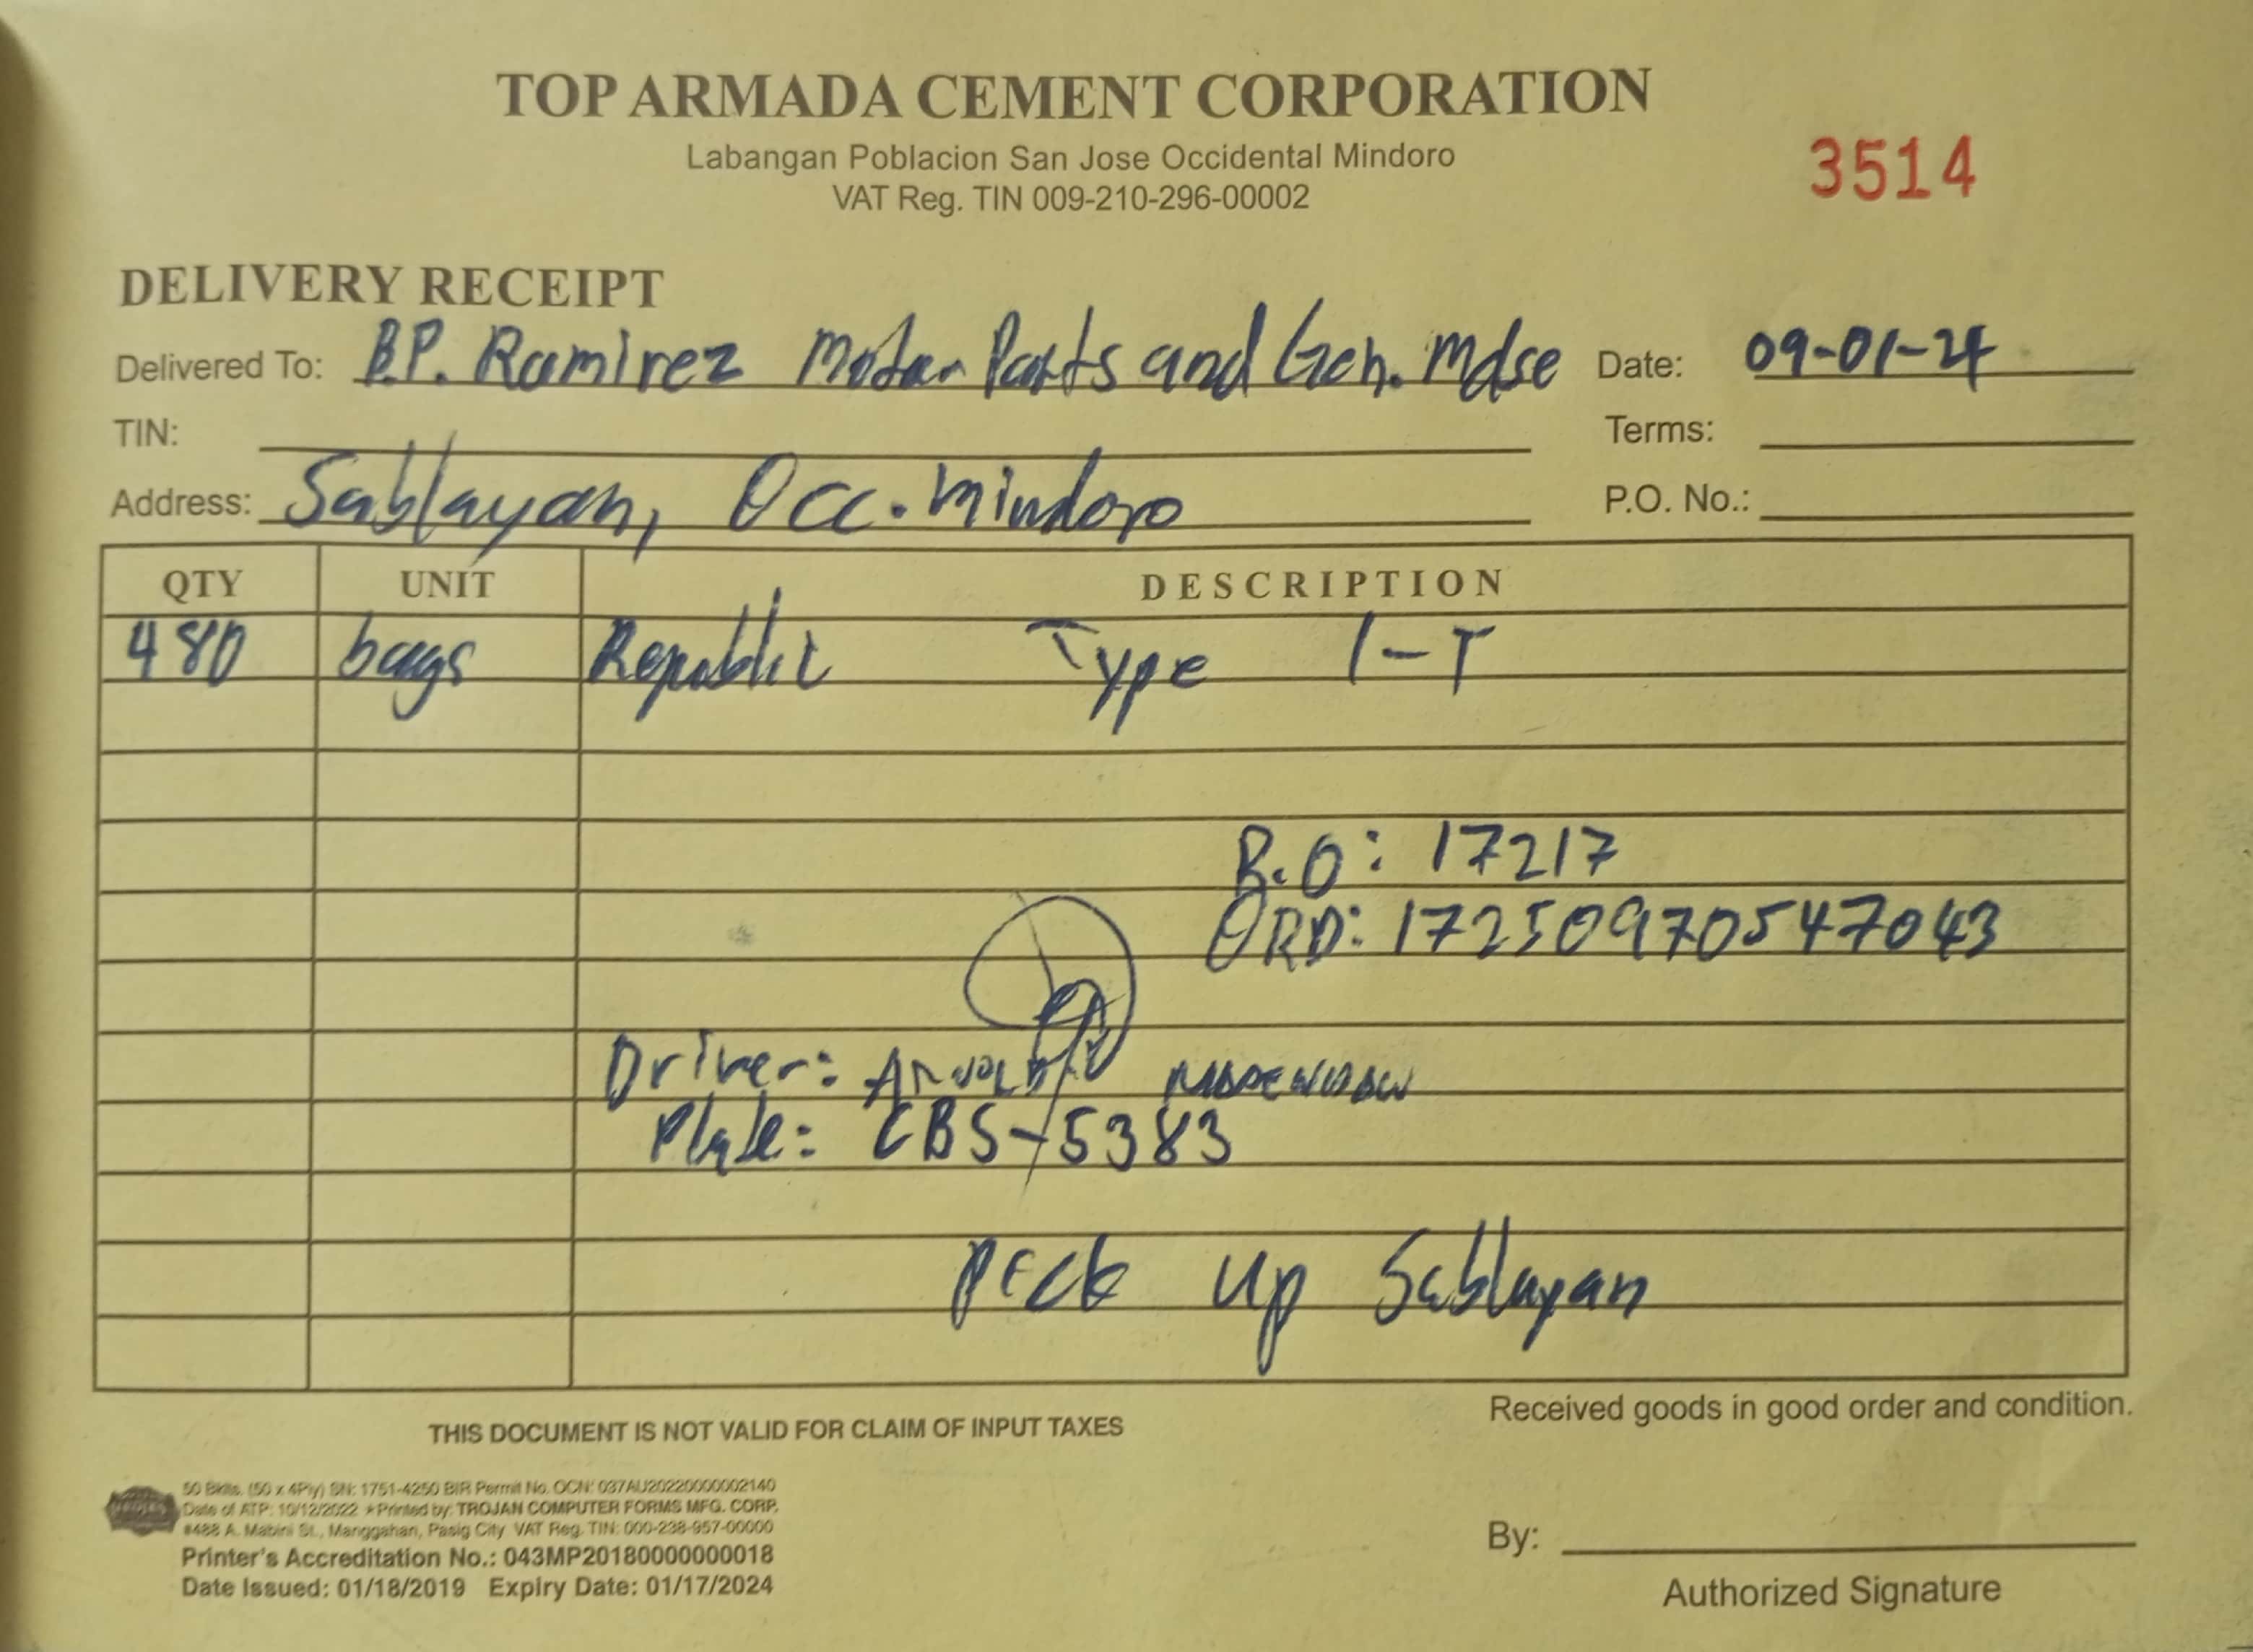 TOP ARMADA CEMENT CORPORATION
Labangan Poblacion San Jose Occidental Mindoro
VAT Reg. TIN 009-210-296-00002
3514
DELIVERY RECEIPT
Delivered To: B.P. Ramirez Motor Parts and Gen. Mdse Date: 09-01-24
TIN: Terms:
Address: Sablayan, Occ. Mindoro P.O. No.:
QTY UNIT DESCRIPTION
480 bags Republic Type 1-T
R.O: 17217
ORD: 1725097054 7043
Driver: Arnold
Plate: CBS-5383
Pick up Sablayan
THIS DOCUMENT IS NOT VALID FOR CLAIM OF INPUT TAXES
Received goods in good order and condition.
50 Bklts. (50 x 4Ply) SN: 1751-4250 BIR Permit No. OCN: 037AU20220000002140
Date of ATP: 10/12/2022 *Printed by: TROJAN COMPUTER FORMS MFG. CORP.
#488 A. Mabini St., Manggahan, Pasig City VAT Reg. TIN: 000-238-957-00000
Printer's Accreditation No.: 043MP20180000000018
Date Issued: 01/18/2019 Expiry Date: 01/17/2024
By:
Authorized Signature